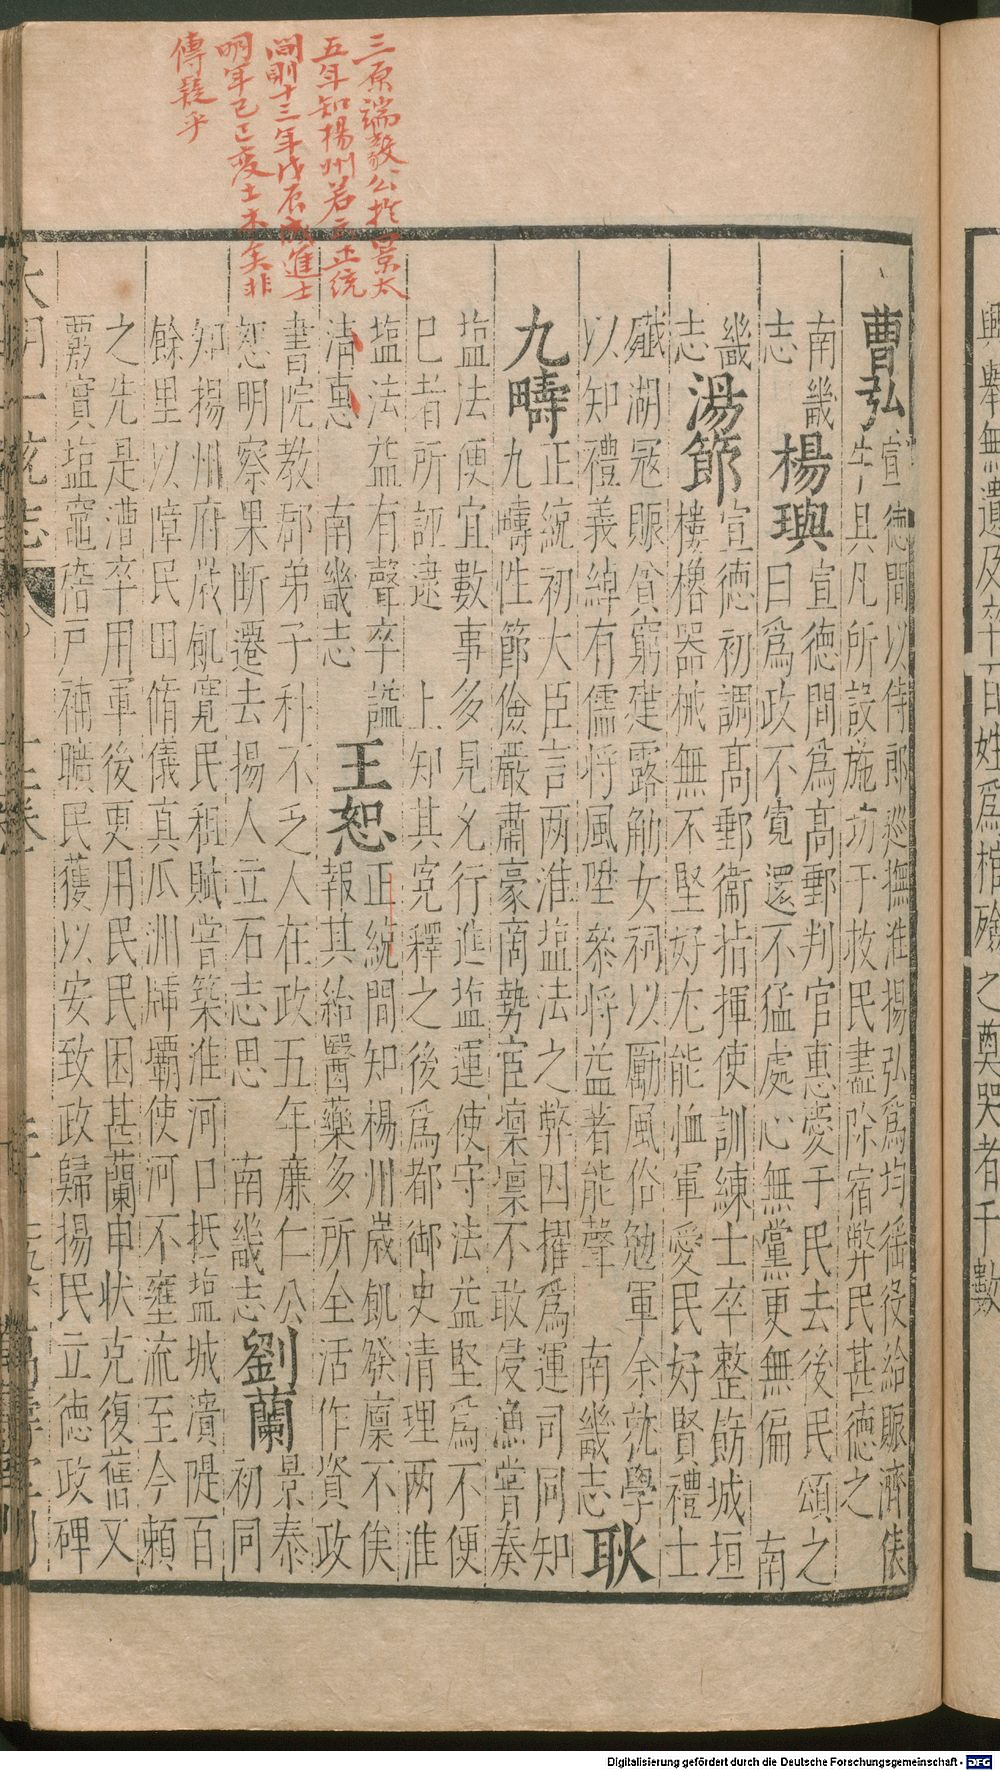 三原端毅公於景太
五年知楊州若云正統
間則十三年戊辰成進士
明年己巳変土木矣非
傳疑乎
曹弘宣德間以侍郎巡撫淮揚弘爲均徭役給賑濟俵
牛具凡所設施切于救民盡除宿弊民甚德之
南畿
志楊璵宣德間爲高郵判官惠愛于民去後民頌之
曰爲政不寬還不猛處心無黨更無偏 南
畿
志湯節宣德初調高郵衞指揮使訓練士卒整飭城垣
樓櫓器械無不堅好尤能恤軍愛民好賢禮士
殲湖冦賑貧窮建露觔女祠以厲風俗勉軍余就學
以知禮義綽有儒将風陞叅将益著能聲 南畿志耿
九疇正統初大臣言两淮塩法之弊因擢爲運司同知
九疇性節儉嚴肅豪商勢宦凛凛不敢侵漁嘗奏
塩法便宜數事多見允行進塩運使守法益堅爲不便
巳者所誣逮 上知其寃釋之後爲都御史清理两淮
塩法益有聲卒謚
清惠 南畿志王恕正統間知楊州歲飢發廩不俟
報其給醫藥多所全活作資政
書院教郡弟子科不乏人在政五年廉仁公
恕明察果断遷去揚人立石志思 南畿志劉蘭景泰
初同
知揚州府歲飢寛民租賦嘗築淮河口抵塩城濆隄百
餘里以障民田脩儀真瓜洲牐壩使河不壅流至今頼
之先是漕卒用軍後更用民民困甚蘭申状克復舊又
覈實塩竈
戸補曠民獲以安致政歸揚民立德政碑
大明一統志
萬壽堂刊
興舉無遺及卒
百姓爲棺殮之奠哭者千數
Digitalisierung gefördert durch die Deutsche Forschungsgemeinschaft - DFG